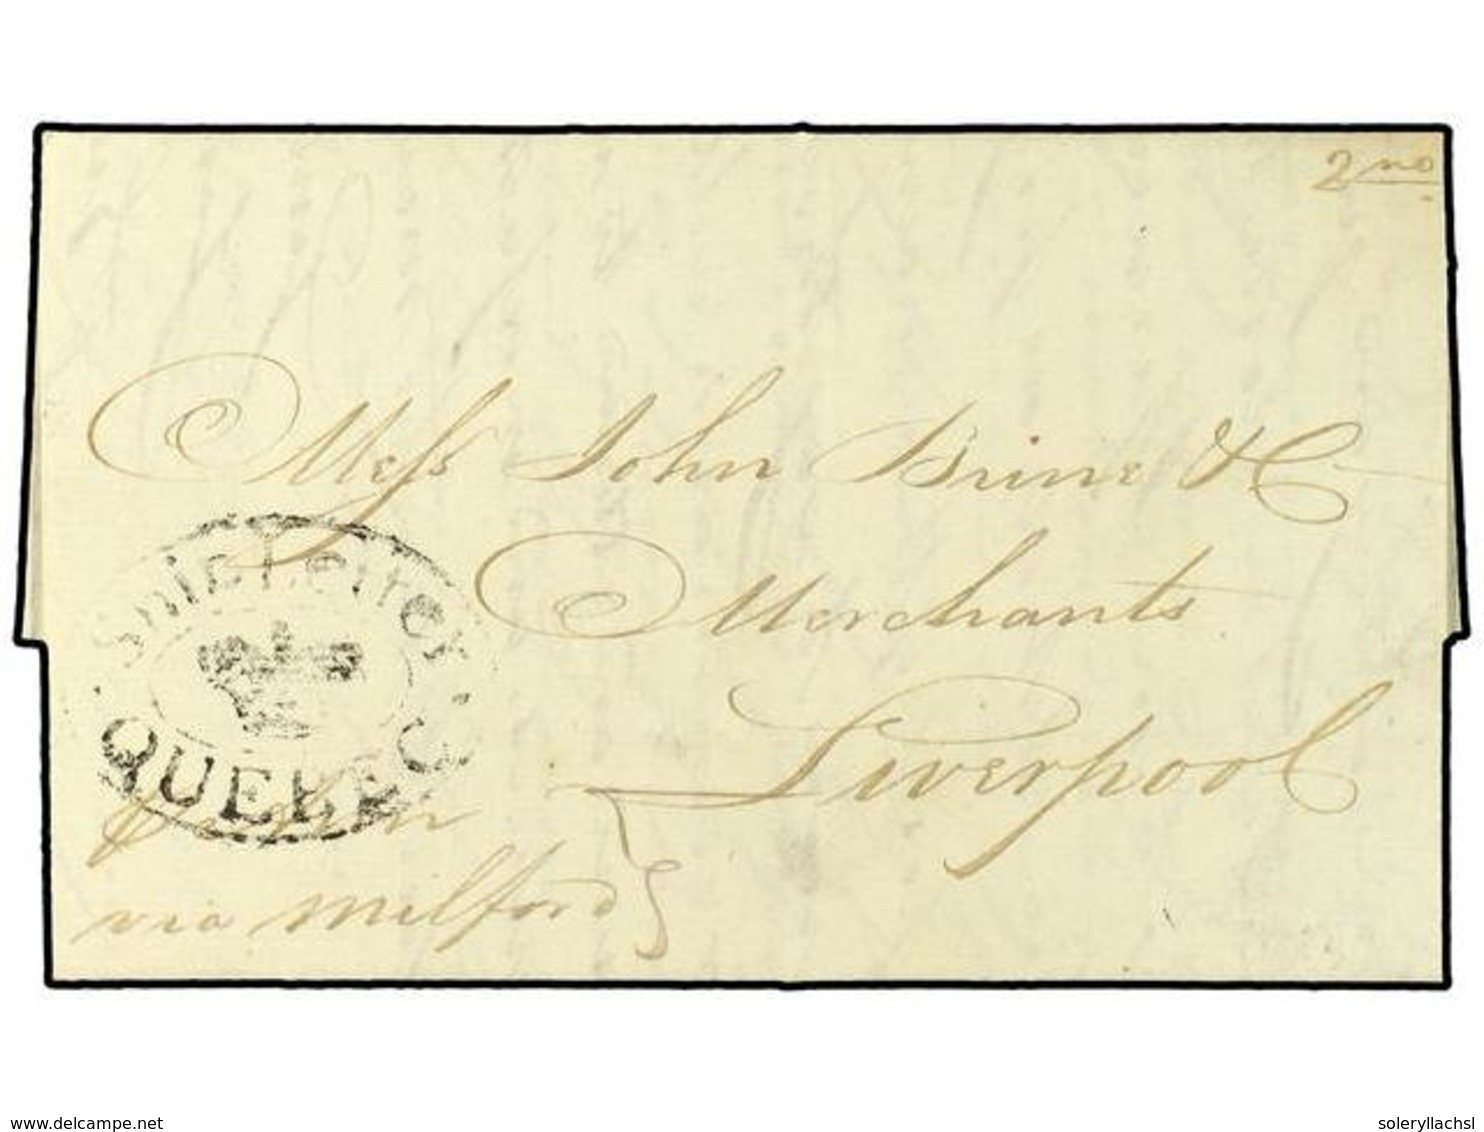 2nd
Mess John Brine & C
Merchants
Liverpool
Ship Letter
QUEBEC
via Milford
delcampe.net
soleryllachsl